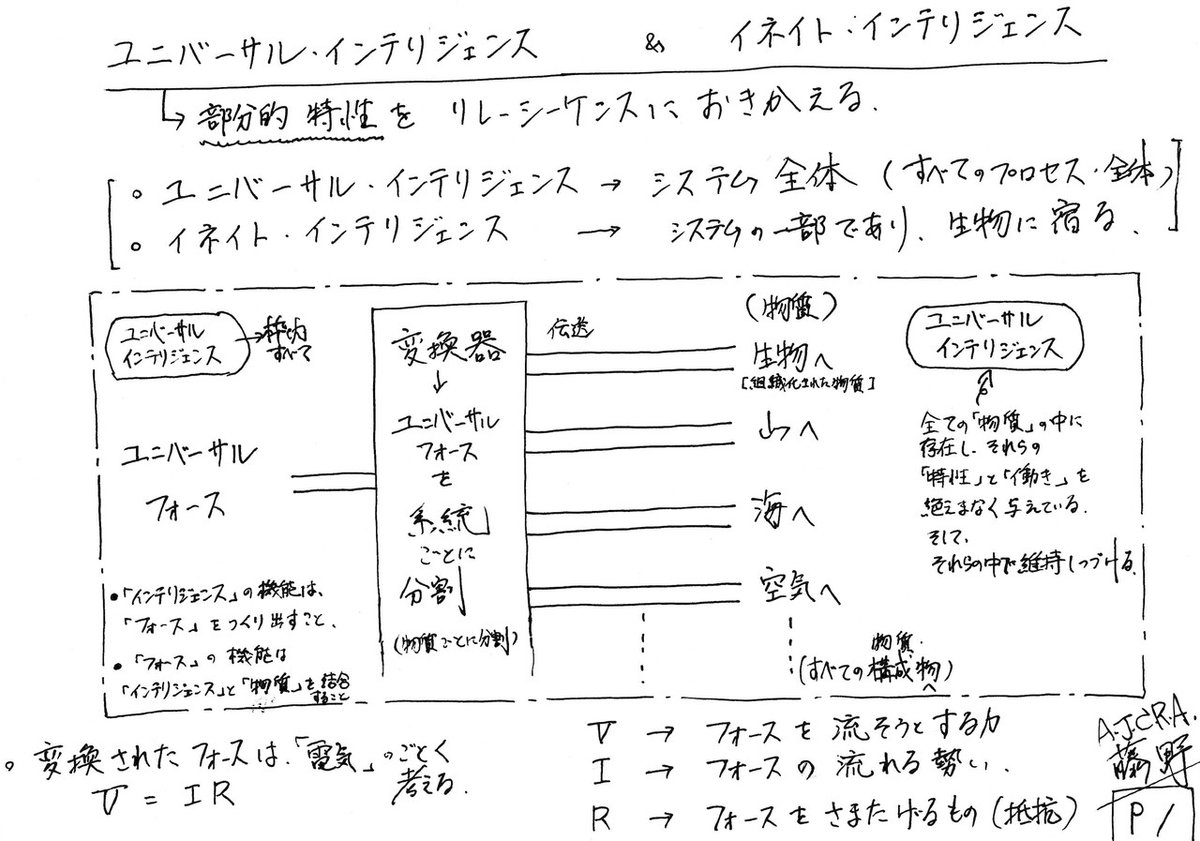 ユニバーサル・インテリジェンス & イネイト・インテリジェンス
↳ 部分的 特性を リレーシーケンスに おきかえる.
○ ユニバーサル・インテリジェンス → システム 全体 (すべてのプロセス・全体)
○ イネイト・インテリジェンス → システムの一部であり、生物に宿る.
ユニバーサル
インテリジェンス
→枠内
すべて
ユニバーサル
フォース
●「インテリジェンス」の機能は、
「フォース」をつくり出すこと、
●「フォース」の機能は
「インテリジェンス」と「物質」を結合
すること
変換器
↓
ユニバーサル
フォース
を
系統
ごとに
分割
(物質ごとに分割)
伝送
(物質)
生物へ
[組織化された物質]
山へ
海へ
空気へ
物質・
(すべての構成物)
へ
ユニバーサル
インテリジェンス
全ての「物質」の中に
存在し、それらの
「特性」と「働き」を
絶えまなく与えている.
そして、
それらの中で維持しつづける.
○ 変換されたフォースは、「電気」のごとく
考える.
V = IR
V → フォースを流そうとする力
I → フォースの流れる勢い.
R → フォースをさまたげるもの (抵抗)
A.J.C.R.A.
藤野
P1